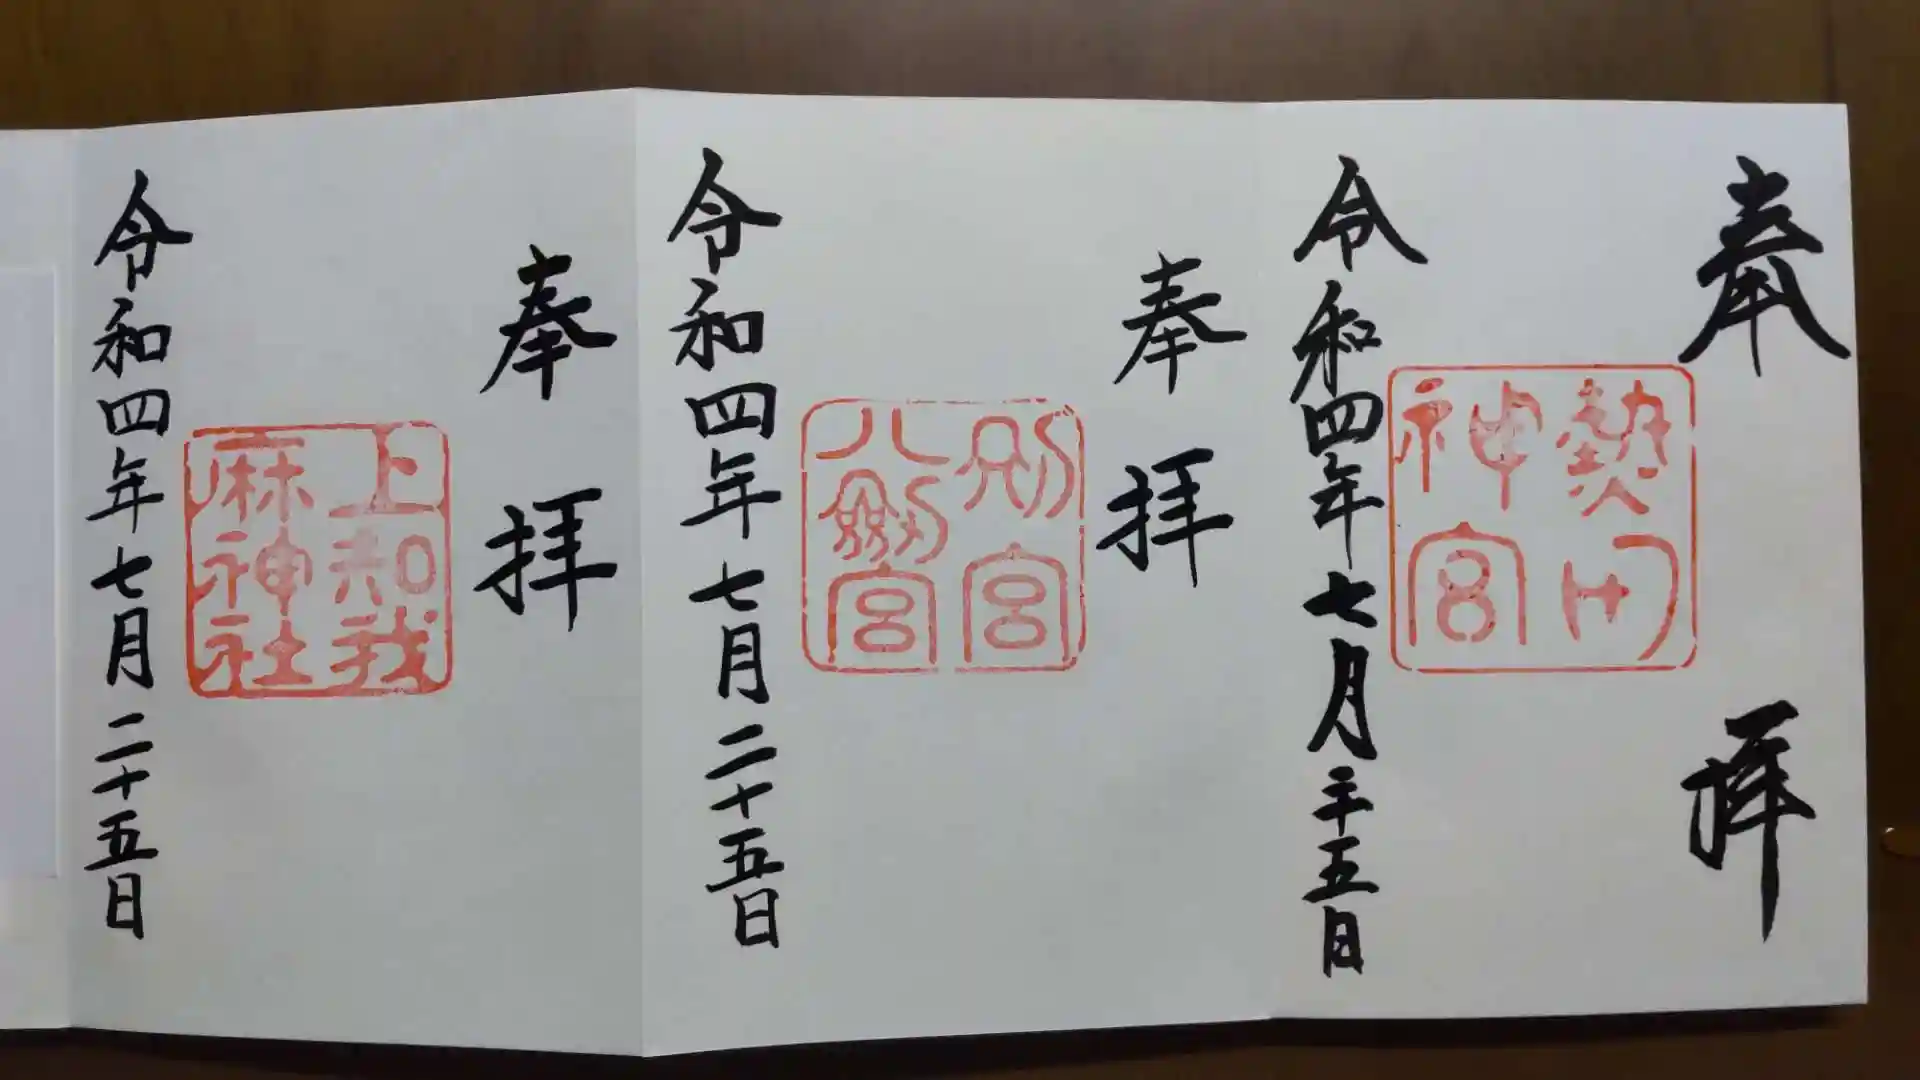 奉拝
熱田
神宮
令和四年七月二十五日
奉拝
別宮
八剱宮
令和四年七月二十五日
奉拝
上知我
麻神社
令和四年七月二十五日